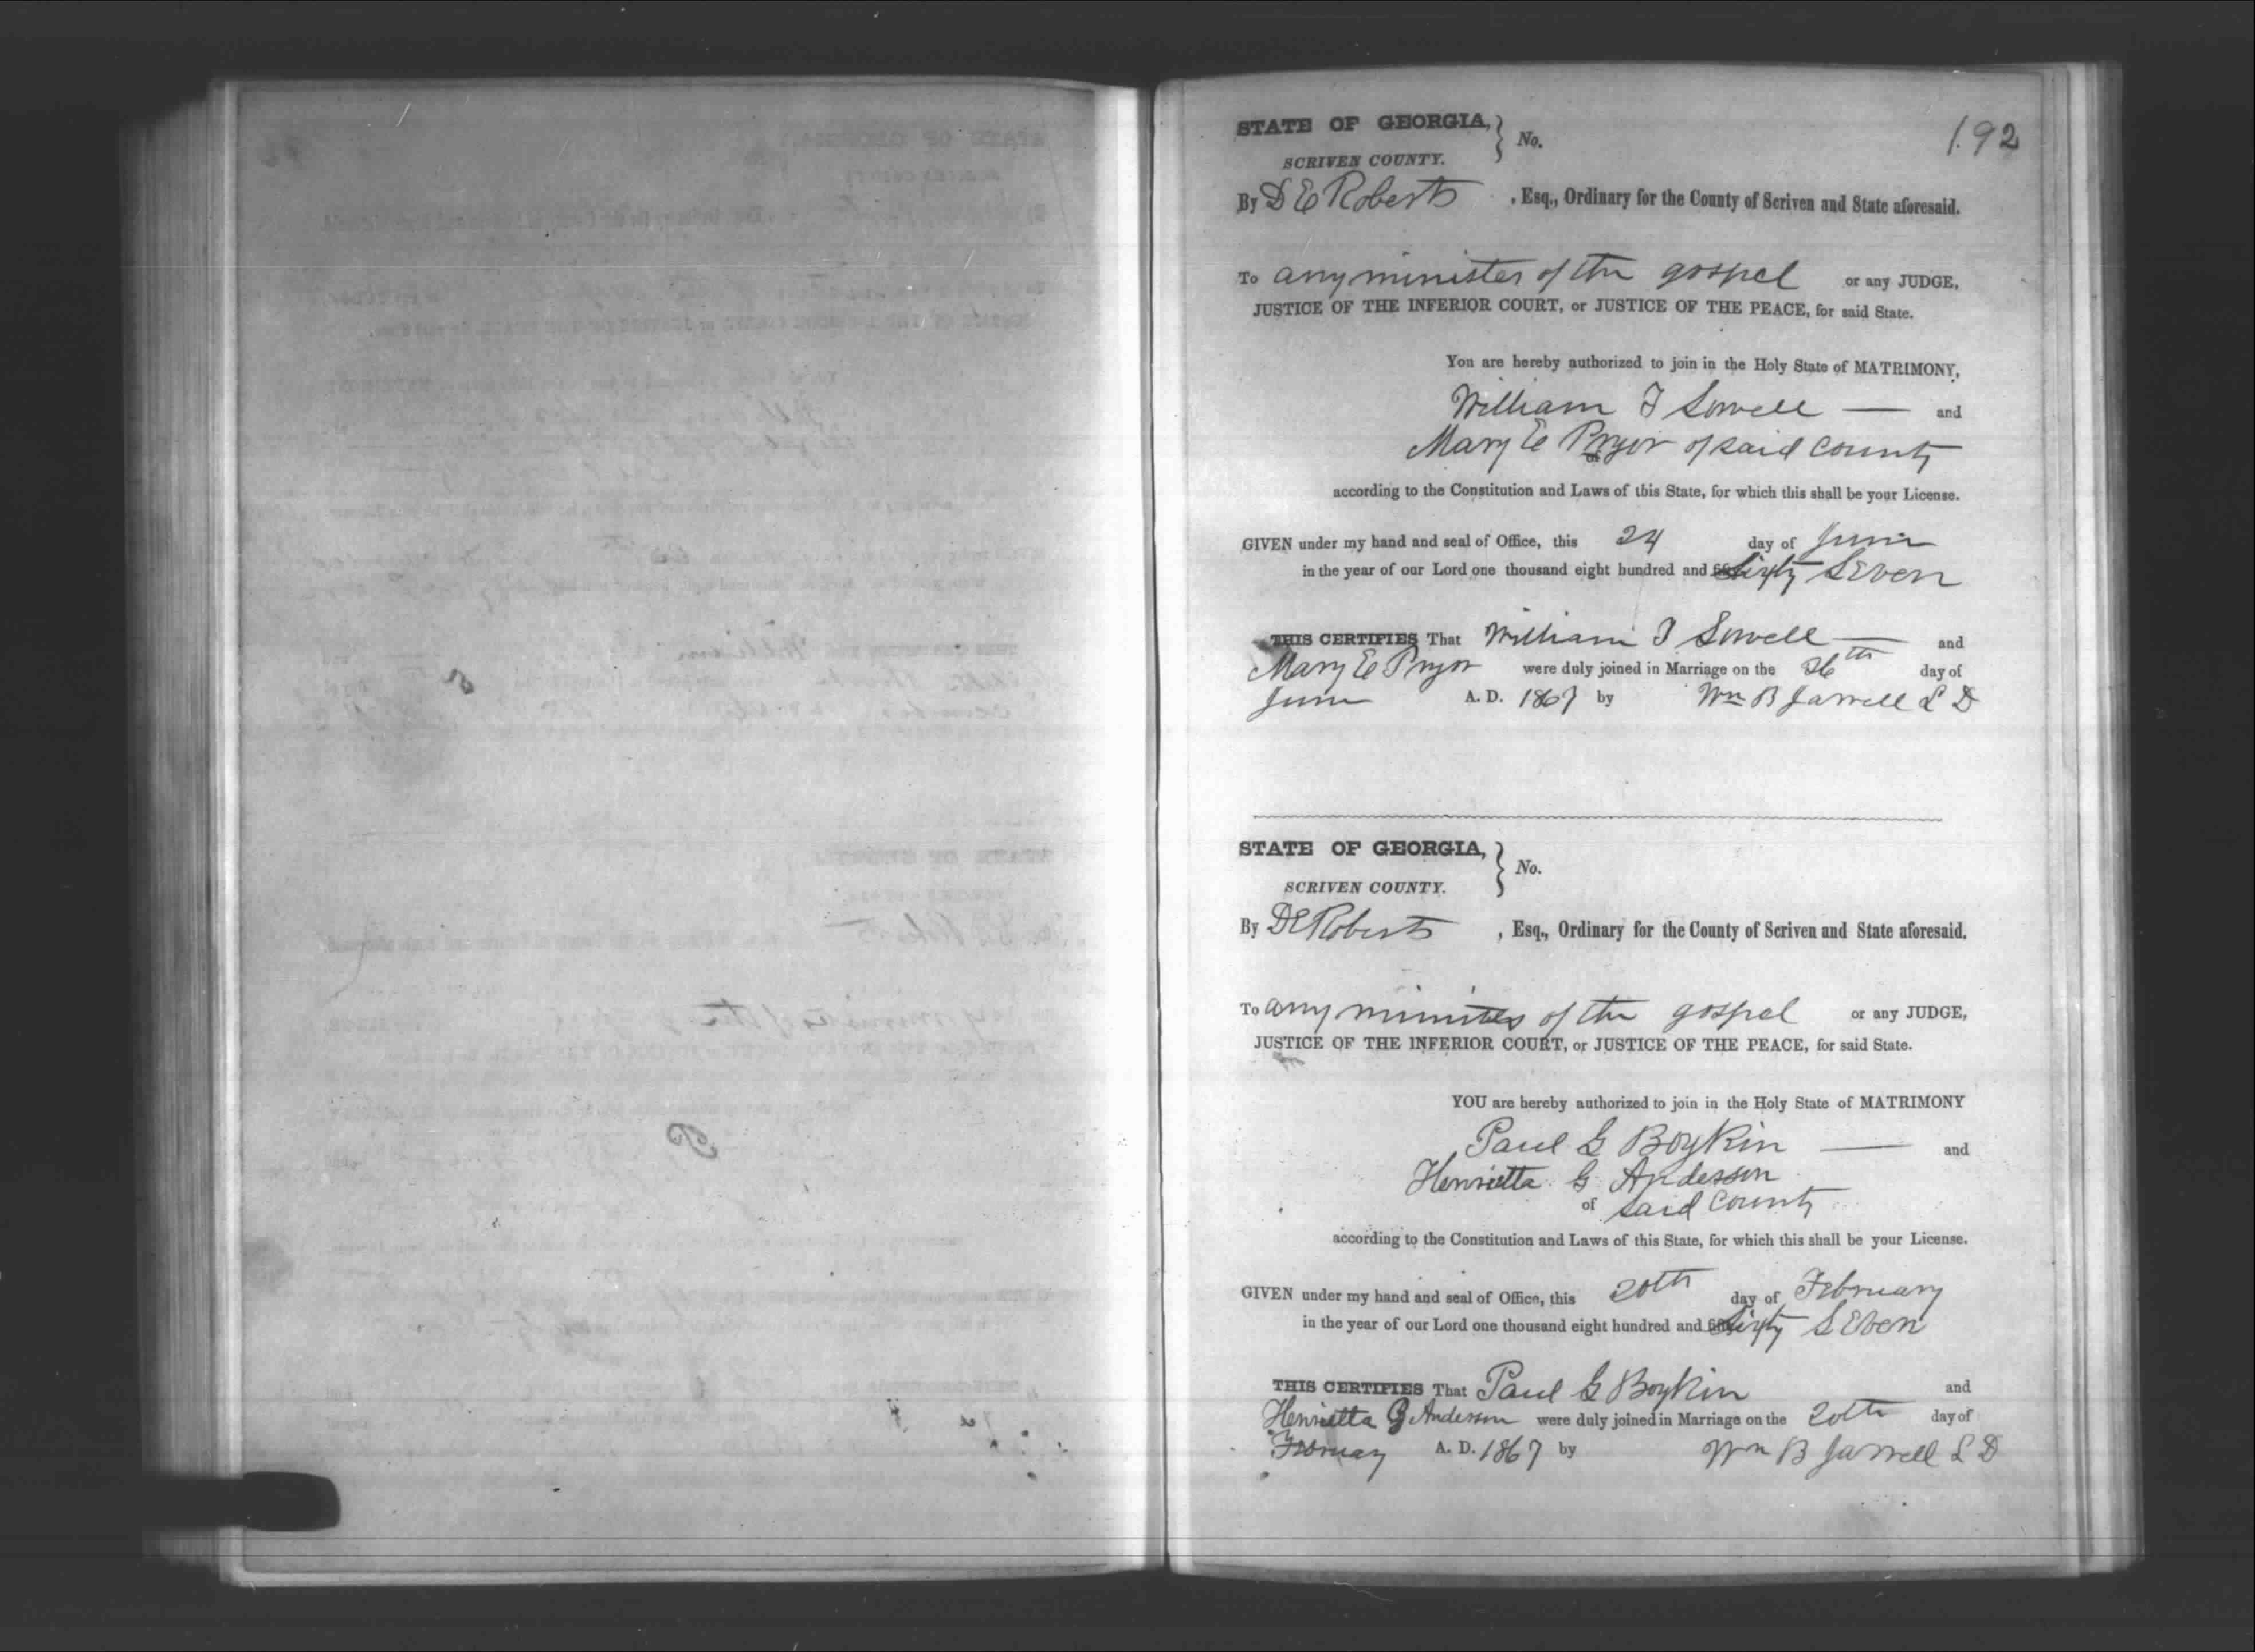 192
STATE OF GEORGIA, } No.
SCRIVEN COUNTY.
By D E Roberts , Esq., Ordinary for the County of Scriven and State aforesaid.
To any minister of the gospel or any JUDGE,
JUSTICE OF THE INFERIOR COURT, or JUSTICE OF THE PEACE, for said State.
You are hereby authorized to join in the Holy State of MATRIMONY,
William T Sowell — and
Mary E Pryor of said County
according to the Constitution and Laws of this State, for which this shall be your License.
GIVEN under my hand and seal of Office, this 24 day of June
in the year of our Lord one thousand eight hundred and Sixty Seven
THIS CERTIFIES That William T Sowell — and
Mary E Pryor were duly joined in Marriage on the 26th day of
June A. D. 1867 by Wm B Jarrell L D
STATE OF GEORGIA, } No.
SCRIVEN COUNTY.
By D E Roberts , Esq., Ordinary for the County of Scriven and State aforesaid,
To any minister of the gospel or any JUDGE,
JUSTICE OF THE INFERIOR COURT, or JUSTICE OF THE PEACE, for said State.
YOU are hereby authorized to join in the Holy State of MATRIMONY
Paul G Boykin — and
Henrietta G Anderson
of said County
according to the Constitution and Laws of this State, for which this shall be your License.
GIVEN under my hand and seal of Office, this 20th day of February
in the year of our Lord one thousand eight hundred and Sixty Seven
THIS CERTIFIES That Paul G Boykin and
Henrietta G Anderson were duly joined in Marriage on the 20th day of
February A. D. 1867 by Wm B Jarrell L D